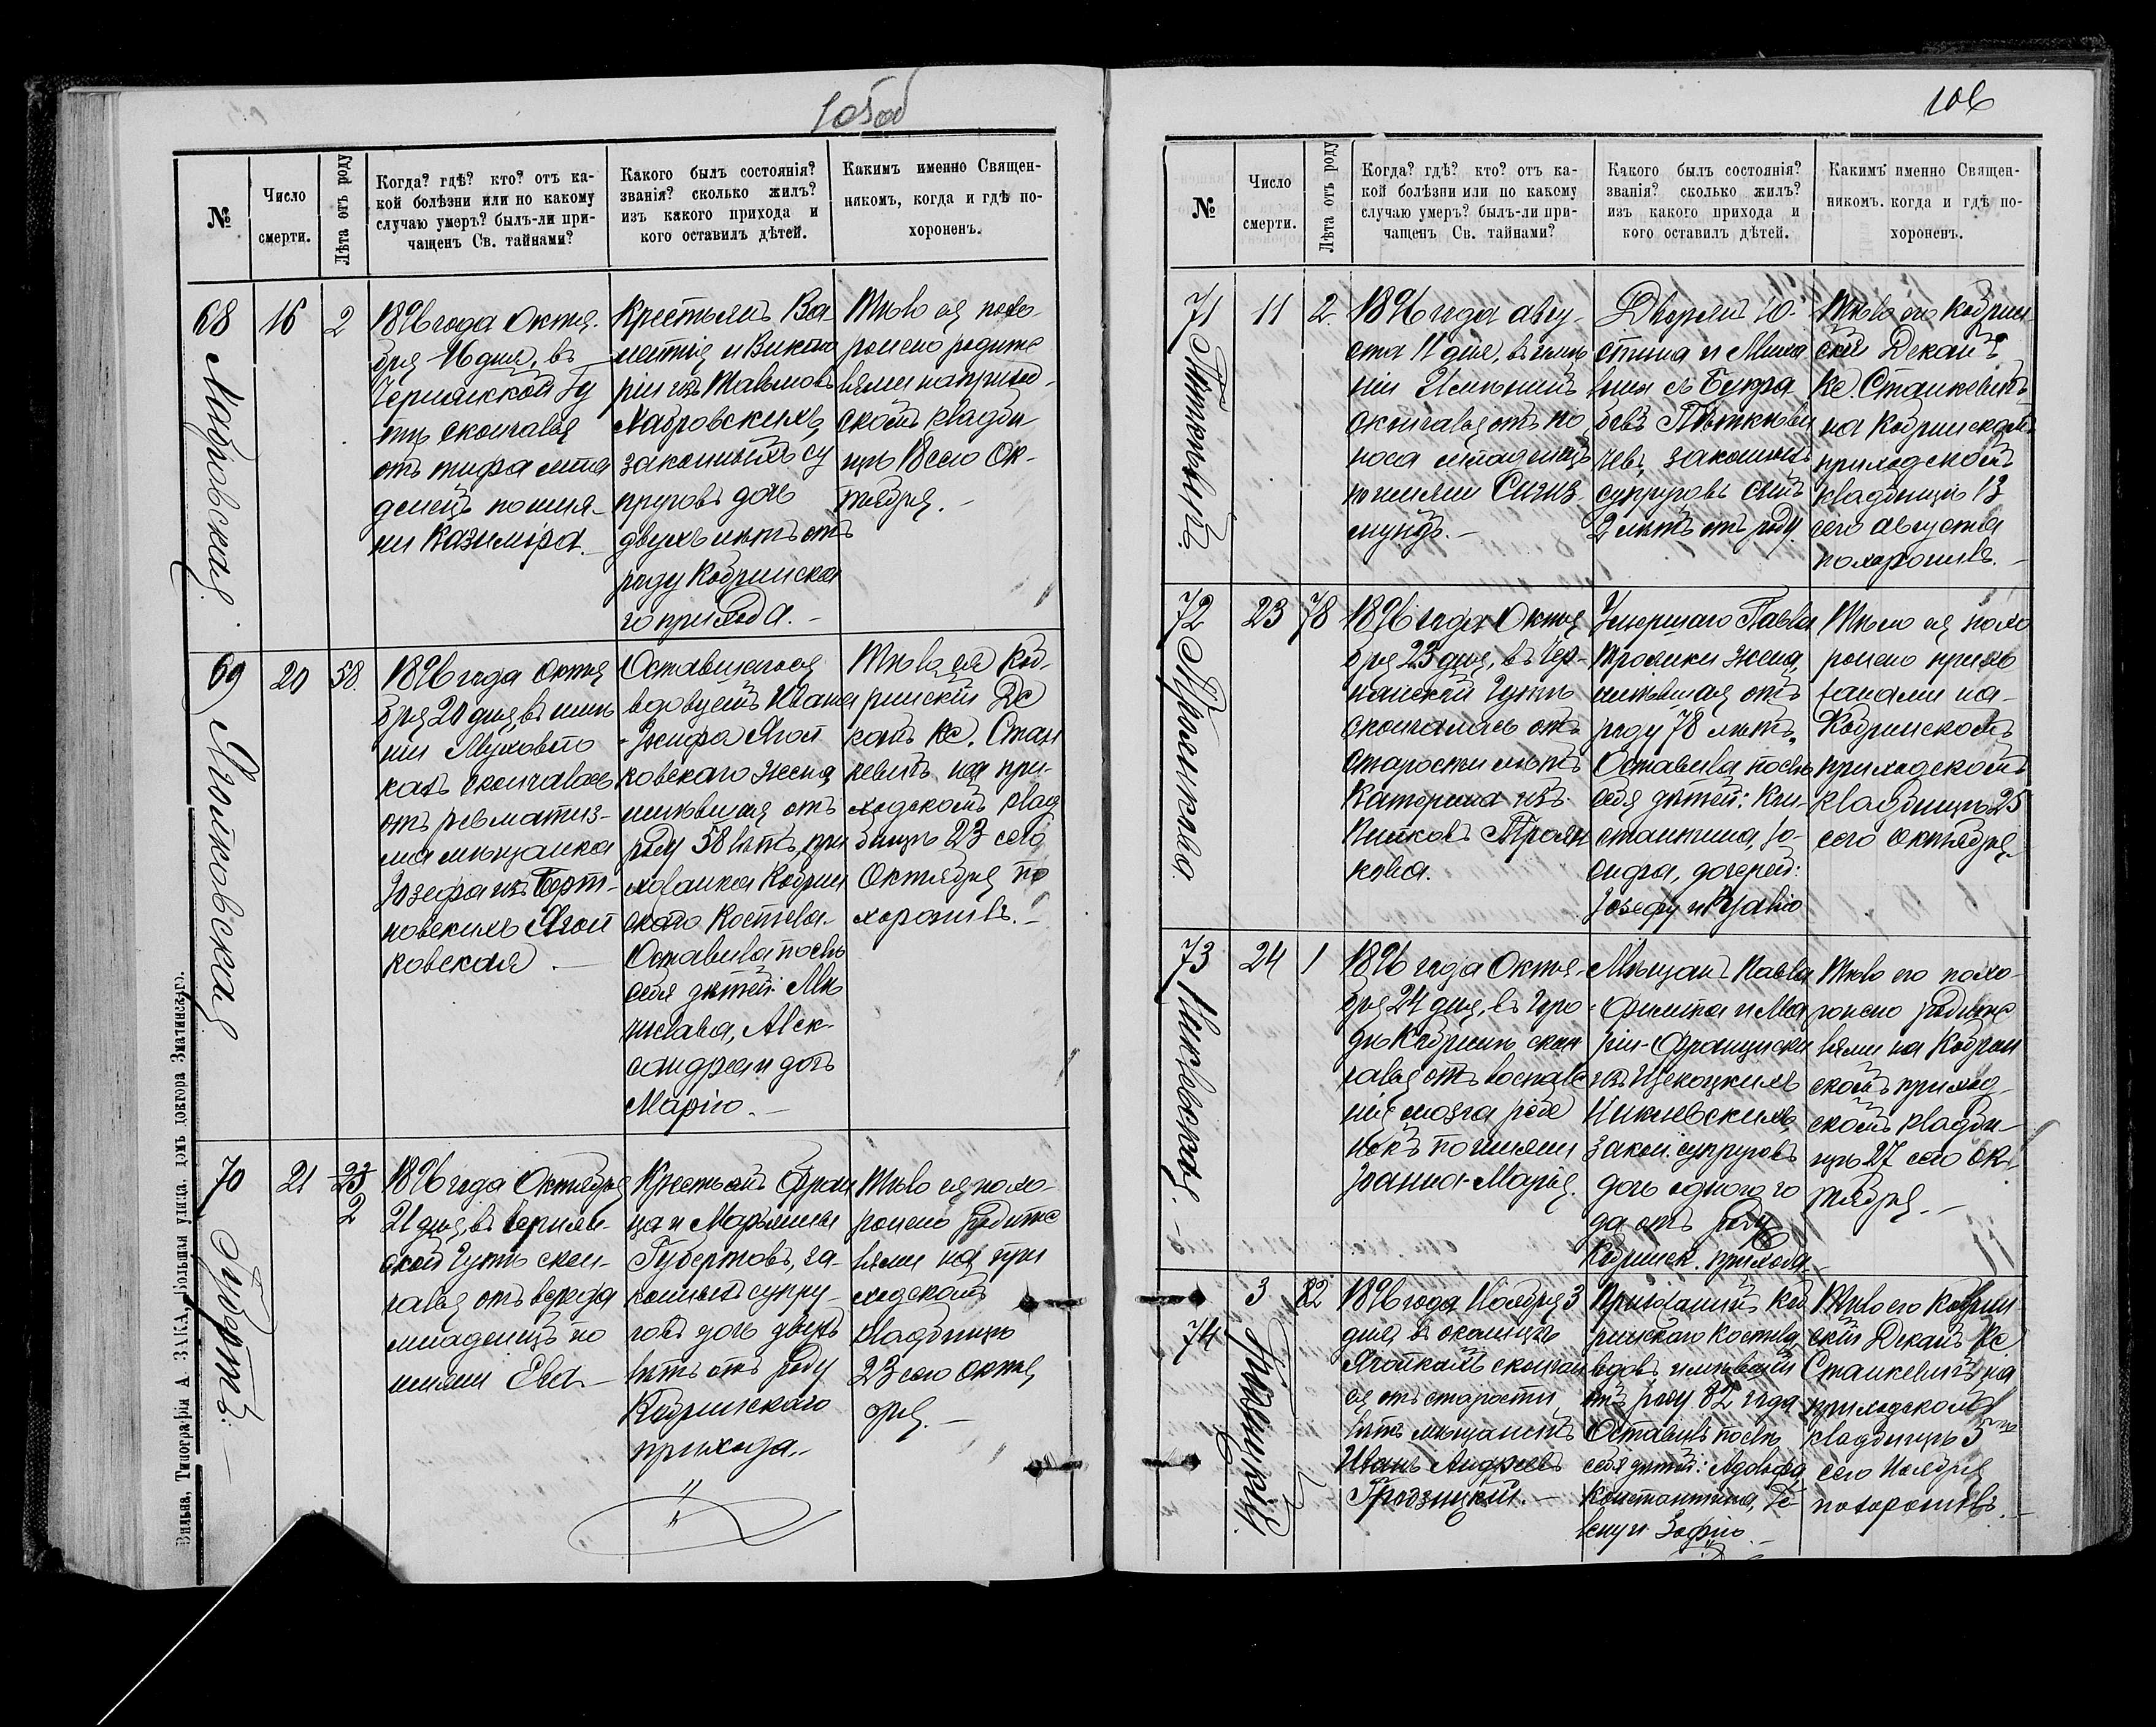 105об
№
Число
смерти.
Лѣта отъ роду
Когда? гдѣ? кто? отъ ка-
кой болѣзни или по какому
случаю умеръ? былъ-ли при-
чащенъ Св. тайнами?
Какого былъ состоянія?
званія? сколько жилъ?
изъ какого прихода и
кого оставилъ дѣтей.
Какимъ именно Священ-
никомъ, когда и гдѣ по-
хороненъ.
68
16
2
1896 года Октя-
бря 16 дня, въ
Чернянской Гу
тѣ скончался
отъ тифа мла
денецъ по име-
ни Казиміра.
Крестьянъ Ва
лентія и Викто
ріи изъ
Лавровскихъ
законныхъ су
пруговъ дочь
двухъ лѣтъ отъ
роду Кобринска
го прихода.
Тѣло ея похо-
ронено родите
лями на приход-
скомъ кладби
щѣ 18 сего Ок-
тября.
69
20
58.
1896 года Октя
бря 20 дня, въ имѣ
ніи Муховло
кахъ скончалась
отъ ревматиз-
ма мѣщанка
Іозефа изъ
новскихъ Ягол
ковская
Оставшагося
вдовцемъ Ивана
ковскаго жена
имѣвшая отъ
роду 58 лѣтъ, при
хожанка Кобрин
скаго Костела.
Оставила послѣ
себя дѣтей: Ме
числава, Алек-
сандра и дочь
Марію.
Тѣло ея Коб-
ринскій Де
канъ Кс. Стан
кевичъ на при-
ходскомъ клад
бищѣ 23 сего
Октября по
хоронилъ.
70
Губертъ.
21
23
2
1896 года Октября
21 дня, въ Чернян-
ской Гутѣ скон-
чался отъ вереда
младенецъ по
имени Ева
Крестьянъ Фран
ца и Марьянны
Губертовъ, за-
конныхъ супру-
говъ дочь двухъ
лѣтъ отъ роду
Кобринскаго
прихода.
Тѣло ея похо-
ронено родите
лями на при
ходскомъ
кладбищѣ
23 сего Октя
бря.
Вильна, Типографія А. ЗАКА, Большая улица, домъ доктора
106
№
Число
смерти.
Лѣта отъ роду
Когда? гдѣ? кто? отъ ка-
кой болѣзни или по какому
случаю умеръ? былъ-ли при-
чащенъ Св. тайнами?
Какого былъ состоянія?
званія? сколько жилъ?
изъ какого прихода и
кого оставилъ дѣтей.
Какимъ именно Священ-
никомъ. когда и гдѣ по-
хороненъ.
71
11
2.
1896 года авгу-
ста 11 дня, въ имѣ
ніи
скончался отъ по
носа младенецъ
по имени Сигиз
мундъ.
Дворянъ Ю-
стина и
законныхъ
супруговъ сынъ
2 лѣтъ отъ роду.
Тѣло его Кобрин
скій Деканъ
Кс. Станкевичъ
на Кобринскомъ
приходскомъ
кладбищѣ 13
сего августа
похоронилъ.
72
23
78
1896 года Октя
бря 23 дня, въ Чер-
нянской Гутѣ
скончалась отъ
старости лѣтъ
Катерина изъ
кова.
Умершаго Павла
жена,
имѣвшая отъ
роду 78 лѣтъ.
Оставила послѣ
себя дѣтей: Кон-
стантина, Іо-
сифа, дочерей:
Іозефу и Юлію
Тѣло ея похо
ронено прихо
жанами на
Кобринскомъ
приходскомъ
кладбищѣ 25
сего октября
73
24
1
1896 года Октя-
бря 24 дня, въ горо
дѣ Кобринѣ скон
чался отъ воспале
нія мозга ребе
нокъ по имени
Іоанна-Марія.
Мѣщанъ Павла
Филипа и Ма
ріи-Франциски
закон. супруговъ
дочь одного го
да отъ роду
Кобринск. прихода
Тѣло его похо-
ронено родите
лями на Кобрин
скомъ приход
скомъ кладби-
щѣ 27 сего Ок
тября.
74
3
82
1896 года Ноября 3
дня въ околицѣ
скончал
ся отъ старости
лѣтъ мѣщанинъ
Иванъ Андреевъ
Прихожанинъ Коб
ринскаго Костела,
вдовъ имѣвшій
отъ роду 82 года
Оставилъ послѣ
себя дѣтей: Адольфа
Константина, Ге
лену и Зофію.
Тѣло его Кобрин
скій Деканъ Кс
Станкевичъ на
приходскомъ
кладбищѣ 5го
сего Ноября
похоронилъ.